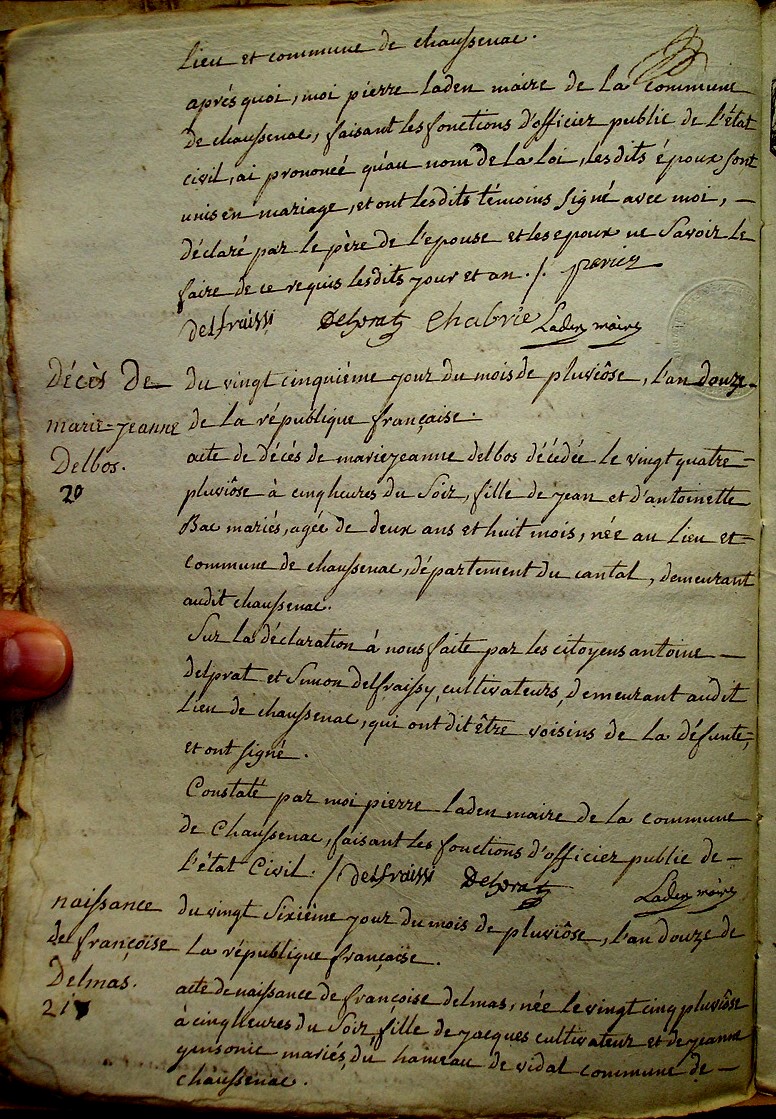 lieu et commune de chaussenac.
après quoi, moi pierre laden maire de la commune
de chaussenac, faisant les fonctions d'officier public de l'état
civil, ai prononcé qu'au nom de la loi, les dits époux sont
unis en mariage, et ont les dits témoins signé avec moi, —
déclaré par le père de l'epouse et les epoux ne savoir le
faire de ce requis les dits jour et an ./. perier
delfraissi Delprat Chabrie Laden maire
Décès de
marie-jeanne
Delbos.
20
du vingt cinquième jour du mois de pluviôse, l'an douze
de la république française.
acte de décès de marie jeanne delbos décédée le vingt quatre
pluviôse à cinq heures du soir, fille de jean et d'antoinette
Bac mariés, agée de deux ans et huit mois, née au lieu et
commune de chaussenac, département du cantal, demeurant
audit chaussenac.
Sur la déclaration à nous faite par les citoyens antoine —
delprat et Simon delfraissy, cultivateurs, demeurant audit
lieu de chaussenac, qui ont dit être voisins de la défunte,
et ont signé.
Constaté par moi pierre laden maire de la commune
de Chaussenac, faisant les fonctions d'officier public de —
l'état Civil ./ delfraissi Delprat Laden maire
naissance
de françoise
Delmas.
21
du vingt sixième jour du mois de pluviôse, l'an douze de
la république française.
acte de naissance de françoise delmas, née le vingt cinq pluviôse
à cinq heures du soir, fille de jacques cultivateur et de jeanne
mariés, du hameau de vidal commune de —
chaussenac.